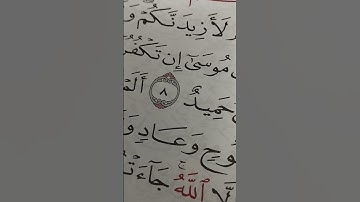 لَأَزِيدَنَّكُمۡ وَ
مُوسَىٰٓ إِن تَكۡفُرُ
حَمِيدٌ ٨ أَلَمۡ
نُوحٖ وَعَادٖ وَ
إِلَّا ٱللَّهُۚ جَآءَتۡ